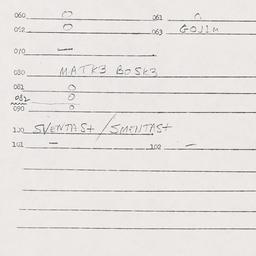 060 O 061 O
062 O 063 GOJIM
070 —
080 MATK3 BOSK3
081 O
082 O
090 O
100 SVENTAS+ / SMENTAS+
101 — 102 —